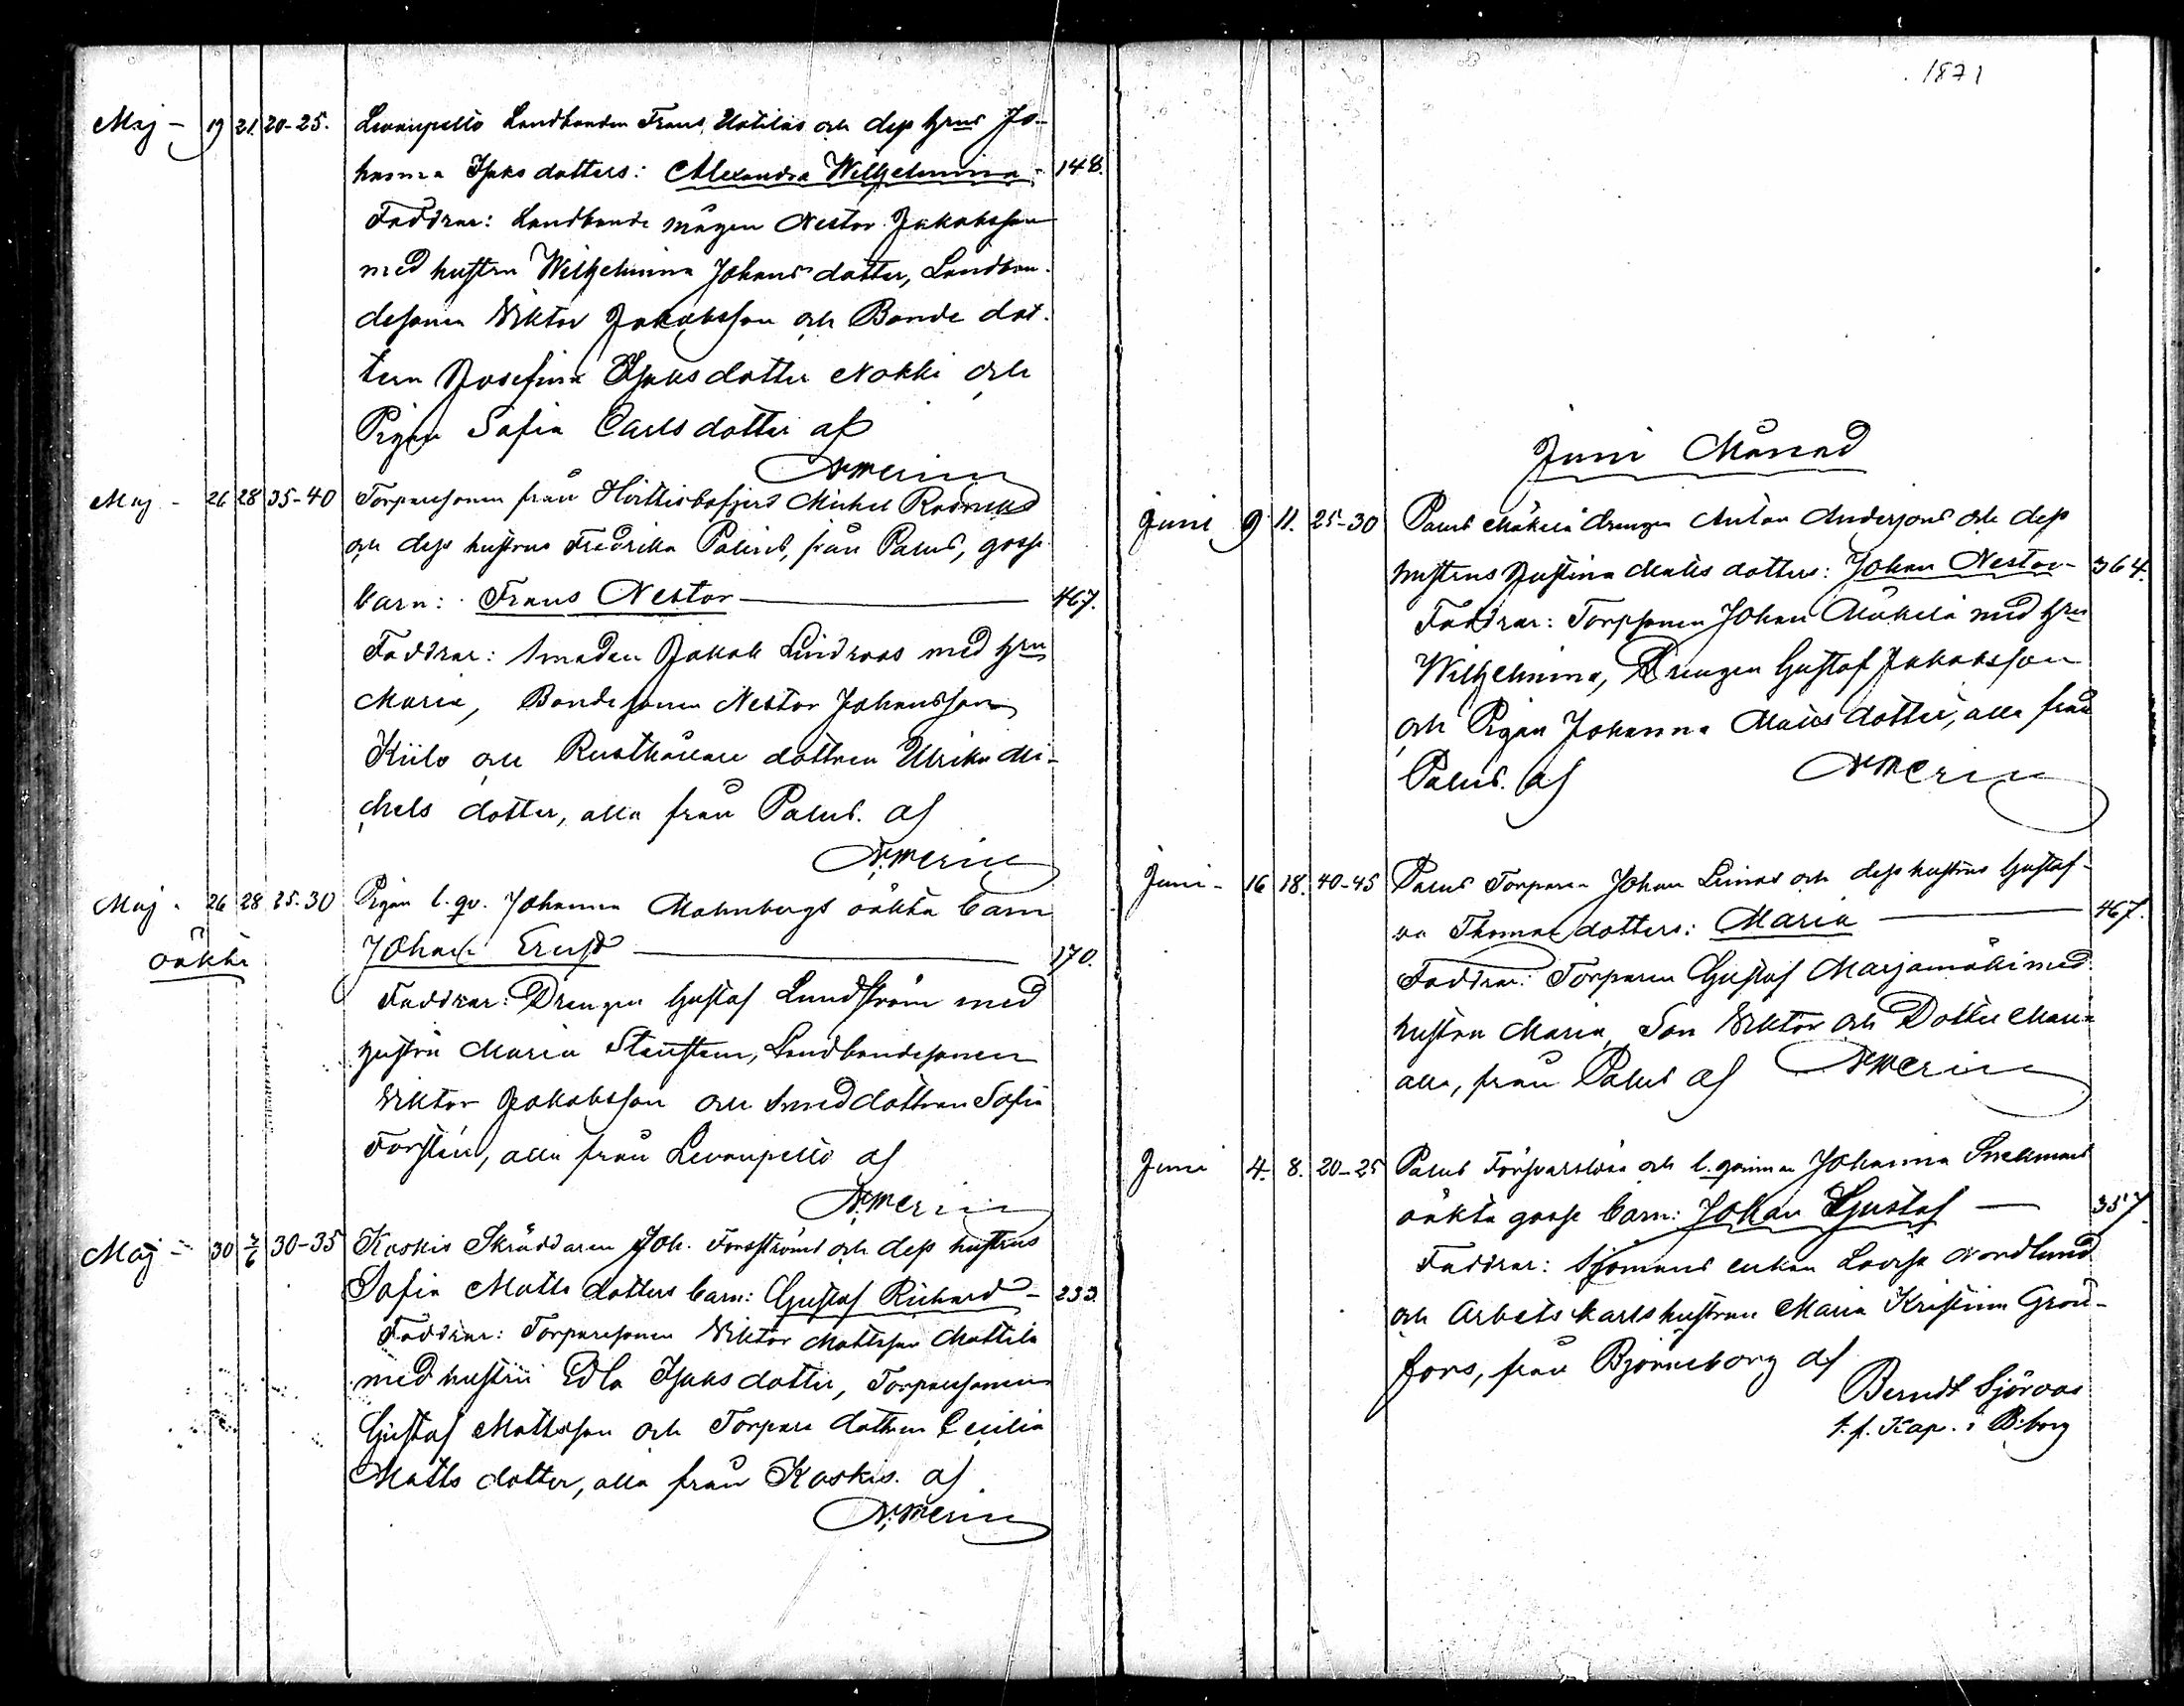 Maj - 19 21. 20-25. Levanpelto Landbonden Frans Uotilas och dess hrus Jo-
hanna Isaks dotters: Alexandra Wilhelmina - 148.
Faddrar: Landbonde mågen Nestor Jakobsson
med hustru Wilhelmina Johans dotter, Landbon-
desonen Viktor Jakobsson och Bonde dot-
tern Josefina Isaks dotter Nokki och
Pigan Sofia Carls dotter af
N. Merin
Maj - 26 28 35-40 Torparesonen från Michel
och dess hustrus Fredrika från Palus, gosse
barn: Frans Nestor 467.
Faddrar: Smeden Jakob Lindroos med hru
Maria, Bondesonen Nestor Johansson
Kiilo och Rusthållare dottren Ulrika Mi-
chels dotter, alla från Palus. af
N. Merin
Maj - 26 28 25-30 Pigan l. qv. Johanna Malmbergs oäkta barn
oäkta
Johan Ernst 170.
Faddrar: Drengen Gustaf Lundström med
hustru Maria Stenstein, Landbondesonen
Viktor Jakobsson och Smeddottren Sofia
Forstén, alla från Levanpelto af
N. Merin
Maj - 30 4/6 30-35 Koskis Skräddaren Joh. Forsströms och dess hustrus
Sofia Matts dotters barn: Gustaf Richard - 233.
Faddrar: Torparesonen Viktor Mattsson Mattila
med hustru Edla Isaks dotter, Torparesonen
Gustaf Mattsson och Torpare dottren Cecilia
Matts dotter, alla från Koskis. af
N. Merin
1871
Juni Månad
Juni 9 11. 25-30 Palus Mäkelä drengen Anton Anderssons och dess
hustrus Justina Matts dotters: Johan Nestor - 364.
Faddrar: Torpsonen Johan Mäkelä med hru
Wilhelmina, Drengen Gustaf Jakobsson
och Pigan Johanna Matts dotter, alla från
Palus. af N. Merin
Juni - 16 18. 40-45 Palus Torparen Johan Leinos och dess hustrus Gustaf-
va Thomas dotters: Maria 467.
Faddrar: Torparen Gustaf Marjamäki med
hustru Maria, Son Viktor och Dotter Maria
alla, från Palus af N. Merin
Juni 4. 8. 20-25 Palus Försvarslösa och l. qvinnan Johanna Snekmans
oäkta gosse barn: Johan Gustaf 357
Faddrar: Sjömans enkan Lovisa Nordlund
och Arbetskarls hustrun Maria Kristina Grön-
fors, från Björneborg af
Berndt Sjöroos
t. f. Kap. i B:borg